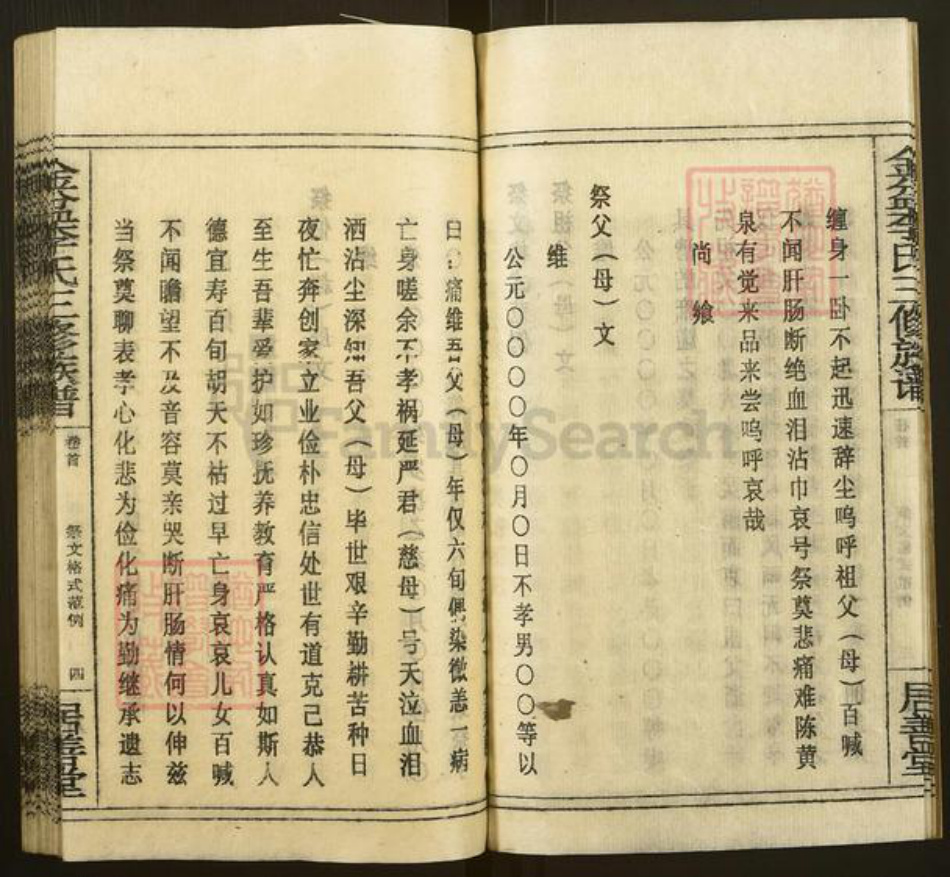 金盆李氏三修族谱
居善堂
缠身一卧不起迅速辞尘呜呼祖父（母）百喊
不闻肝肠断绝血泪沾巾哀号祭奠悲痛难陈黄
泉有觉来品来尝呜呼哀哉
尚飨
祭父（母）文
维
公元〇〇〇〇年〇月〇日不孝男〇〇等以
曰：痛维吾父（母）年仅六旬偶染微恙一病
亡身嗟余不孝祸延严君（慈母）号天泣血泪
洒沾尘深知吾父（母）毕世艰辛勤耕苦种日
夜忙奔创家立业俭朴忠信处世有道克己恭人
至生吾辈爱护如珍抚养教育严格认真如斯人
德宜寿百旬胡天不祜过早亡身哀哀儿女百喊
不闻瞻望不及音容莫亲哭断肝肠情何以伸兹
当祭奠聊表孝心化悲为俭化痛为勤继承遗志
金盆李氏三修族谱
卷首
祭文格式范例
四
居善堂
FamilySearch